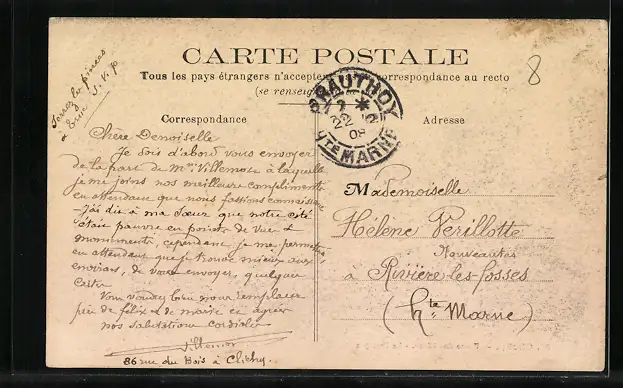 CARTE POSTALE
Tous les pays étrangers n'acceptent correspondance au recto
(se renseigner
Correspondance
Adresse
8
Serrez les pinces
à Eva S.V.P
PRAUTHOY
HTE MARNE
Chère Demoiselle
Je dois d'abord vous envoyer
de la part de Mme Villemor à laquelle
je me joins nos meilleurs compliments
en attendant que nous fassions connaissance
J'ai dit à ma sœur que notre cité
était pauvre en points de vue &
monuments, cependant je me permettrai
en attendant que je trouve mieux aux
environs, de vous envoyer, quelques
cartes
Vous voudrez bien nous
de félix & de marie et agréer
nos salutations cordiales
Villemor
86 rue du Bois à Clichy
Mademoiselle
Hélène Perillotte
Nouveautés
à Rivière-les-fosses
(Hte Marne)